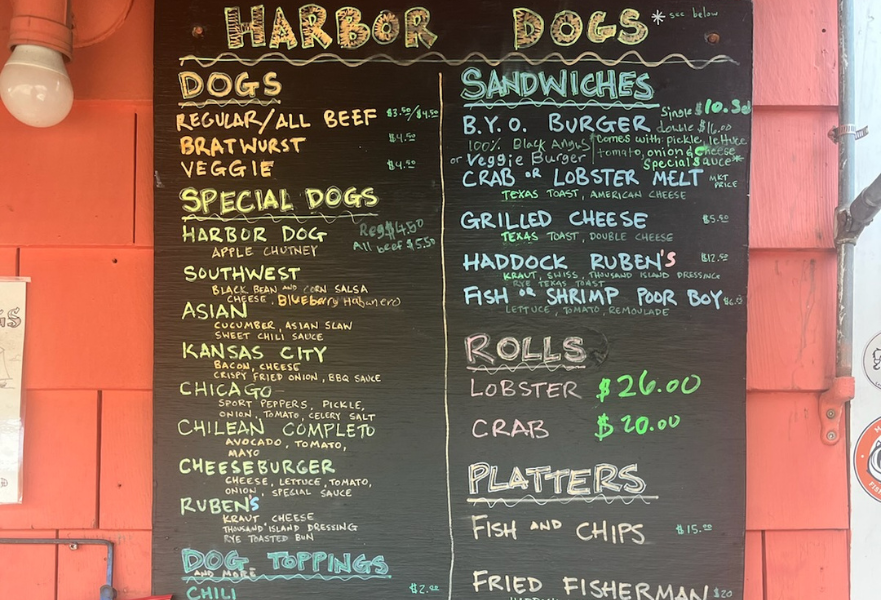 HARBOR DOGS * see below
DOGS
REGULAR/ALL BEEF $3.50/$4.50
BRATWURST $4.50
VEGGIE $4.50
SPECIAL DOGS
HARBOR DOG Reg $4.50
APPLE CHUTNEY All beef $5.50
SOUTHWEST
BLACK BEAN AND CORN SALSA
CHEESE, Blueberry Habanero
ASIAN
CUCUMBER, ASIAN SLAW
SWEET CHILI SAUCE
KANSAS CITY
BACON, CHEESE
CRISPY FRIED ONION, BBQ SAUCE
CHICAGO
SPORT PEPPERS, PICKLE,
ONION, TOMATO, CELERY SALT
CHILEAN COMPLETO
AVOCADO, TOMATO,
MAYO
CHEESEBURGER
CHEESE, LETTUCE, TOMATO,
ONION, SPECIAL SAUCE
RUBEN'S
KRAUT, CHEESE
THOUSAND ISLAND DRESSING
RYE TOASTED BUN
DOG TOPPINGS
AND MORE
CHILI $2.00
SANDWICHES
Single $10.30
B.Y.O. BURGER double $16.00
100% Black Angus comes with pickle, lettuce
or Veggie Burger tomato, onion & cheese
special sauce*
CRAB OR LOBSTER MELT MKT PRICE
TEXAS TOAST, AMERICAN CHEESE
GRILLED CHEESE $5.50
TEXAS TOAST, DOUBLE CHEESE
HADDOCK RUBEN'S $12.50
KRAUT, SWISS, THOUSAND ISLAND DRESSING
RYE TEXAS TOAST
FISH OR SHRIMP POOR BOY
LETTUCE, TOMATO, REMOULADE
ROLLS
LOBSTER $26.00
CRAB $20.00
PLATTERS
FISH AND CHIPS $15.00
FRIED FISHERMAN $20